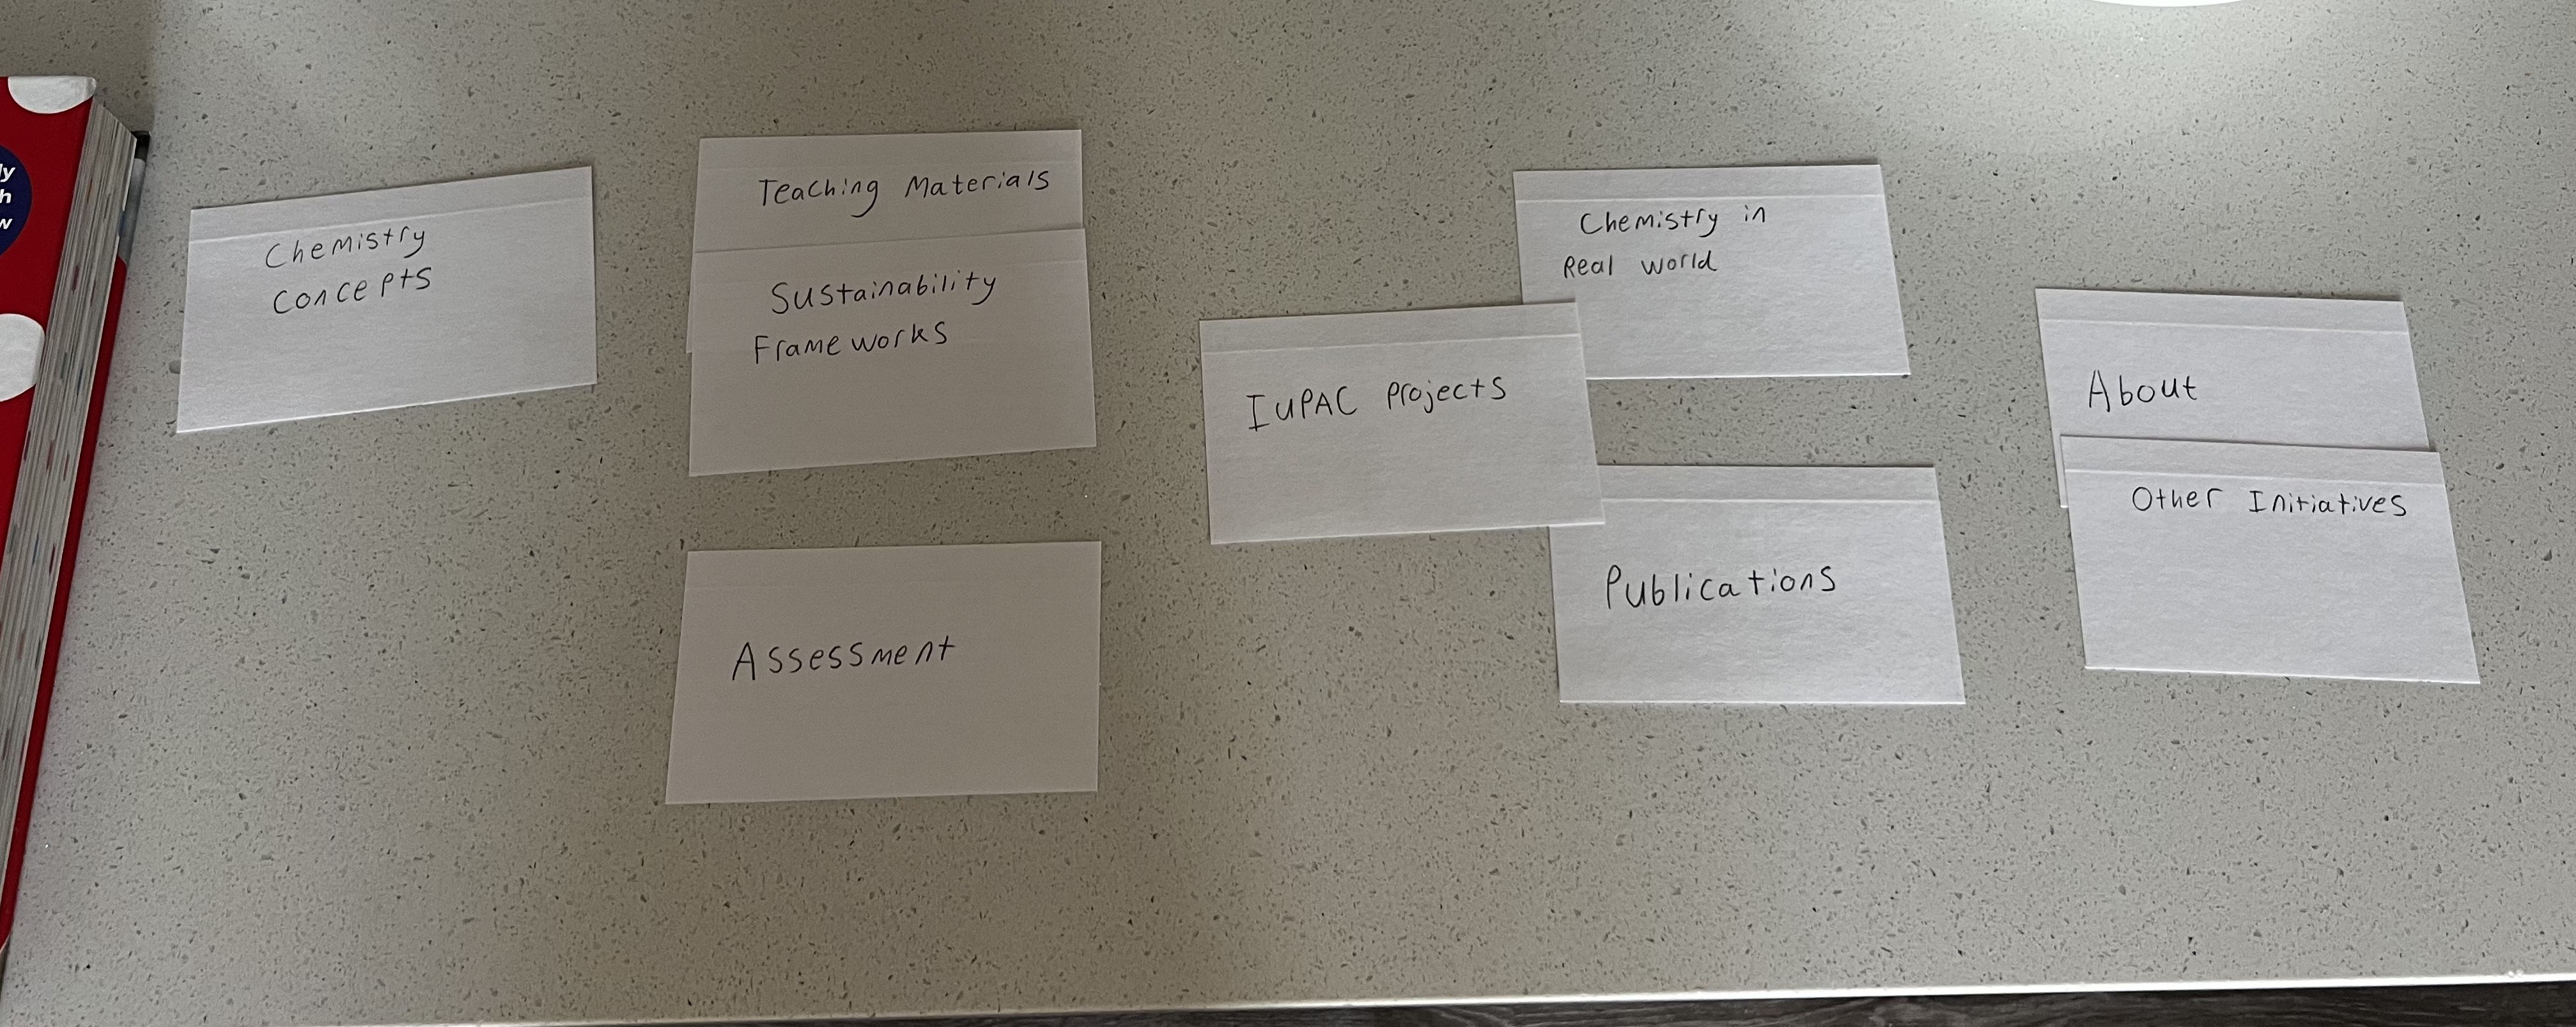 ly
h
w
Chemistry
Concepts
Teaching Materials
Sustainability
Frameworks
Assessment
IUPAC Projects
Chemistry in
Real world
Publications
About
Other Initiatives